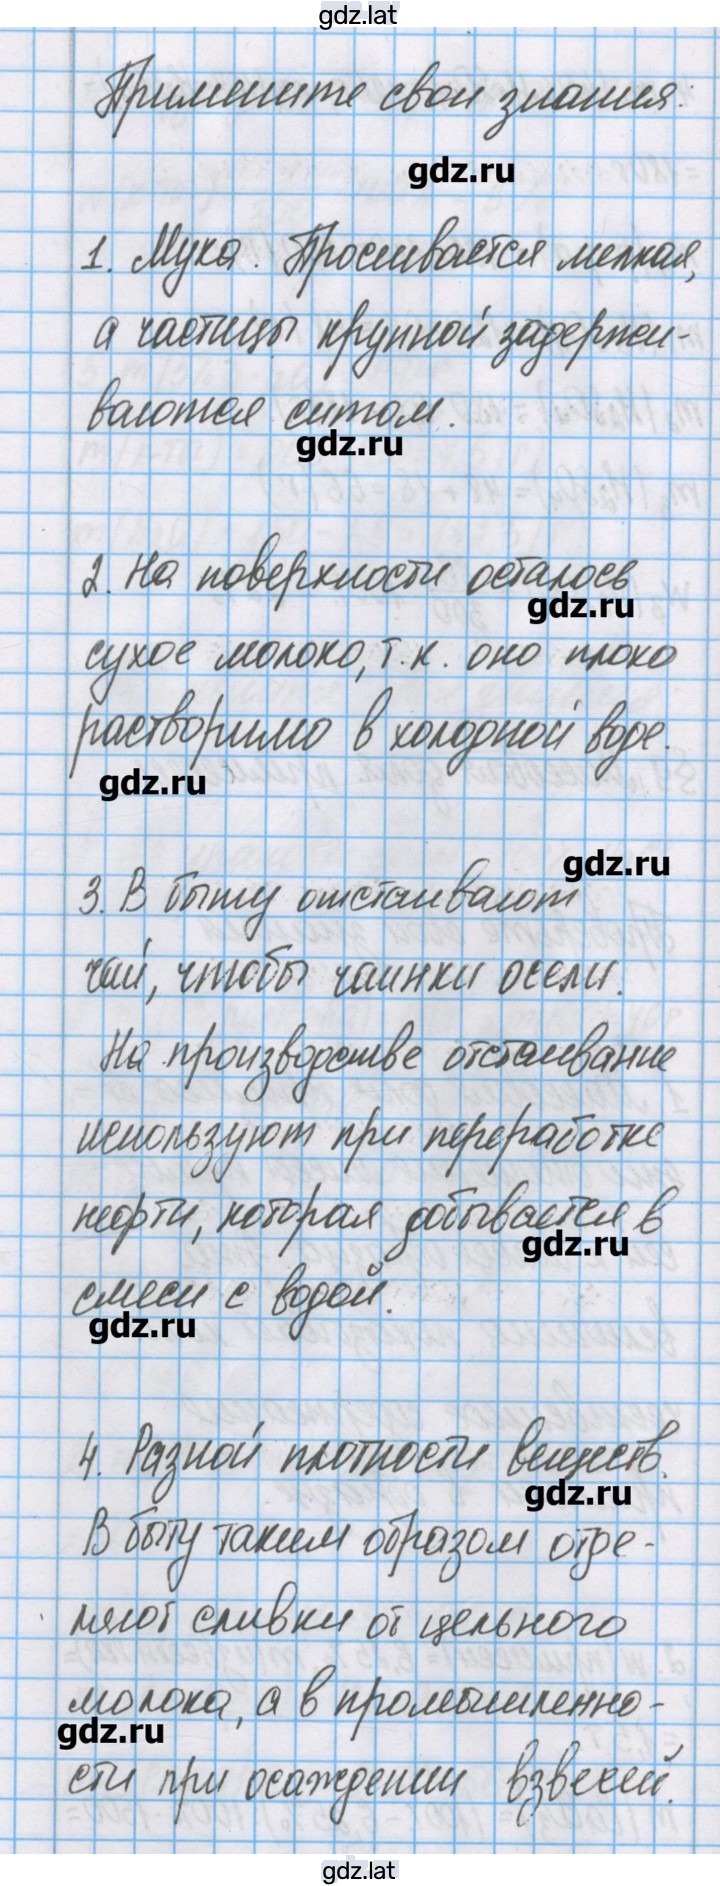 gdz.lat
Примените свои знания:
gdz.ru
1. Мука. Просеивается мелкая,
а частицы крупной задержи-
ваются ситом.
gdz.ru
2. На поверхности осталось
gdz.ru
сухое молоко, т.к. оно плохо
растворимо в холодной воде.
gdz.ru
gdz.ru
3. В быту отстаивают
чай, чтобы чаинки осели.
На производстве отстаивание
используют при переработке
нефти, которая добывается в
gdz.ru
смеси с водой.
gdz.ru
4. Разной плотности веществ.
gdz.ru
В быту таким образом отде-
ляют сливки от цельного
молока, а в промышленно-
gdz.ru
сти при осаждении взвесей.
gdz.lat